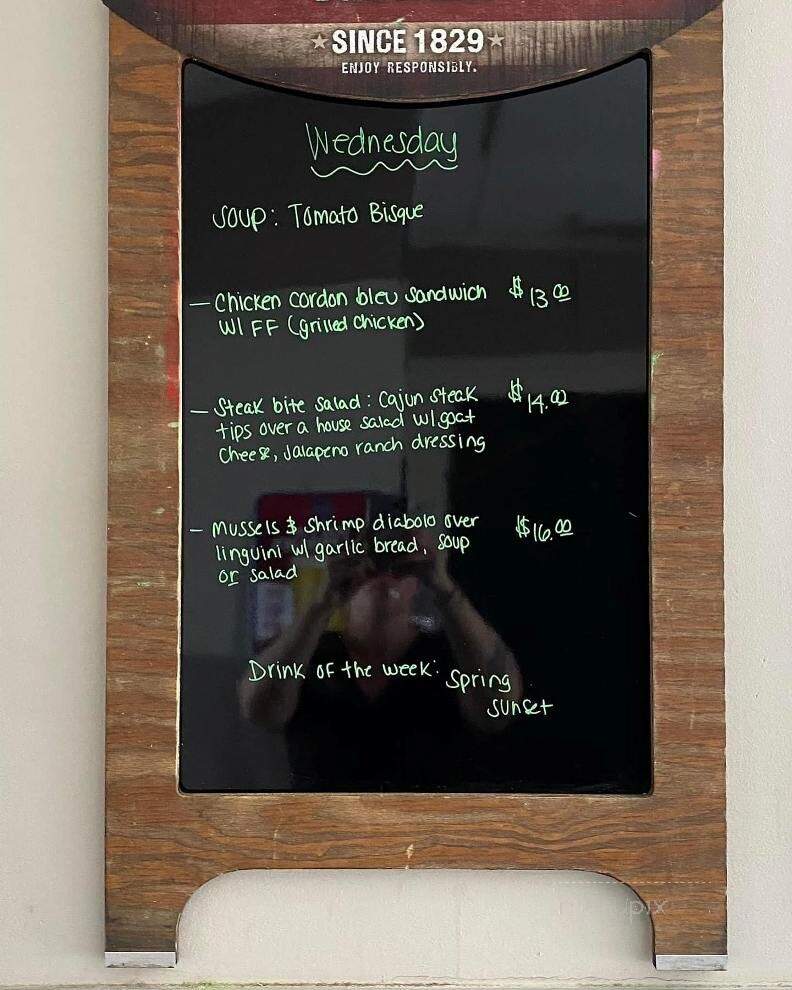 SINCE 1829
ENJOY RESPONSIBLY.
Wednesday
Soup: Tomato Bisque
— Chicken cordon bleu sandwich $13.00
w/ FF (grilled chicken)
— Steak bite salad: Cajun steak $14.00
tips over a house salad w/ goat
cheese, Jalapeno ranch dressing
— Mussels & shrimp diabolo over $16.00
linguini w/ garlic bread, soup
or salad
Drink of the week: Spring
sunset
pix